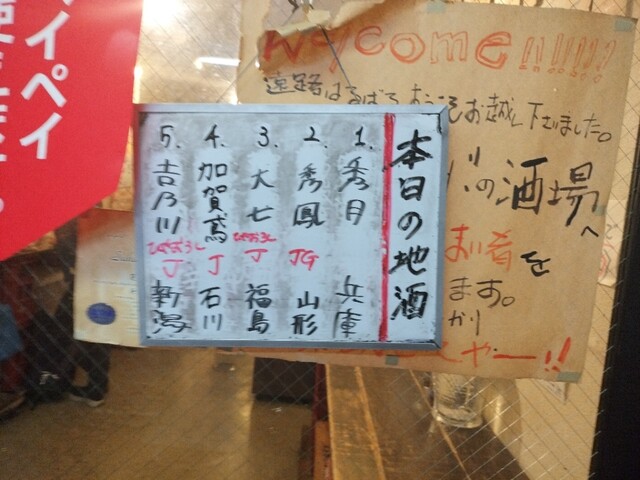 本日の地酒
1. 秀月 兵庫
2. 秀鳳 JG 山形
3. 大七 ひやおろし J 福島
4. 加賀鳶 J 石川
5. 吉乃川 ひやおろし J 新潟
Welcome!!!!!!!
遠路はるばるようこそお越し下さいました。
の酒場へ
肴を
ます。
かり
ペイペイ